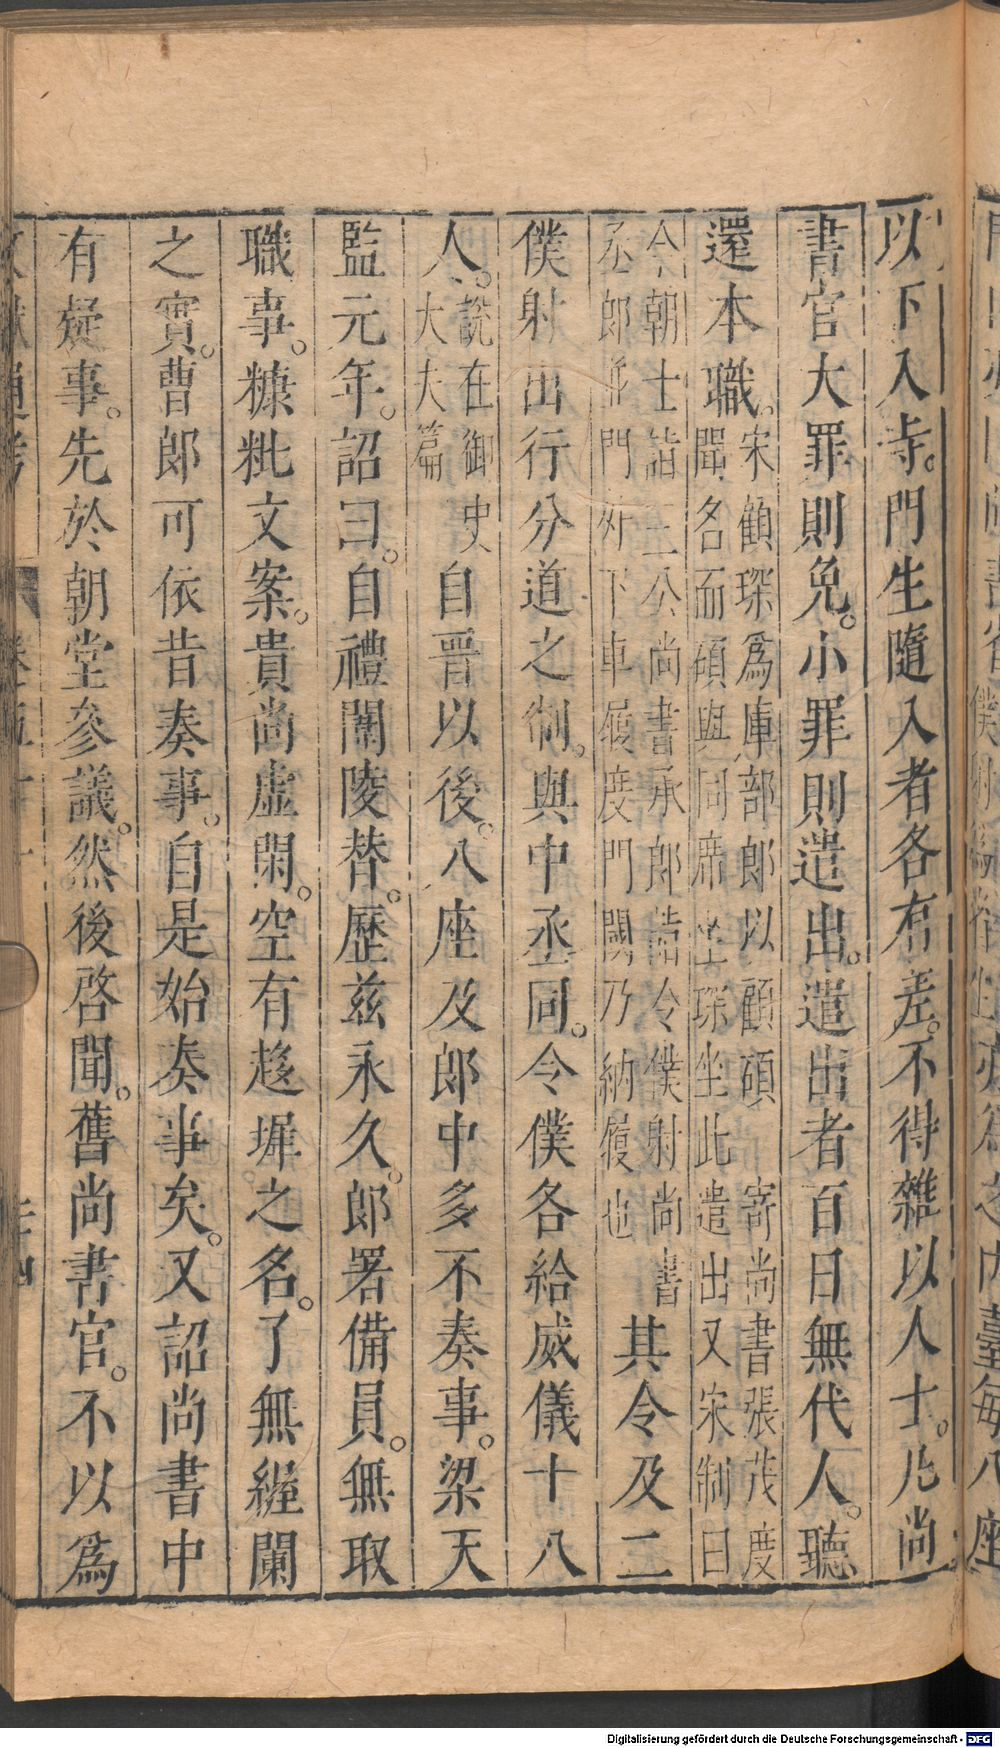 以下入寺。門生隨入者各有差。不得雜以人士。凡尚
書官大罪則免。小罪則遣出。遣出者百日無代人。聽
還本職。宋顧琛為庫部郎以顧碩寄尚書張茂度
聞名而碩與同席坐琛坐此遣出又宋制曰
令朝士詣三公尚書丞郎詣令僕射尚書
並門外下車履度門閫乃納屐也其令及二
僕射出行分道之制。與中丞同。令僕各給威儀十八
人。說在御史
大夫篇自晉以後。八座及郎中多不奏事。梁天
監元年。詔曰。自禮闈陵替。歷茲永久。郎署備員。無取
職事。糠粃文案。貴尚虛閑。空有趍墀之名。了無握蘭
之實。曹郎可依昔奏事。自是始奏事矣。又詔尚書中
有疑事。先於朝堂參議。然後啓聞。舊尚書官。不以為
Digitalisierung gefördert durch die Deutsche Forschungsgemeinschaft - DFG